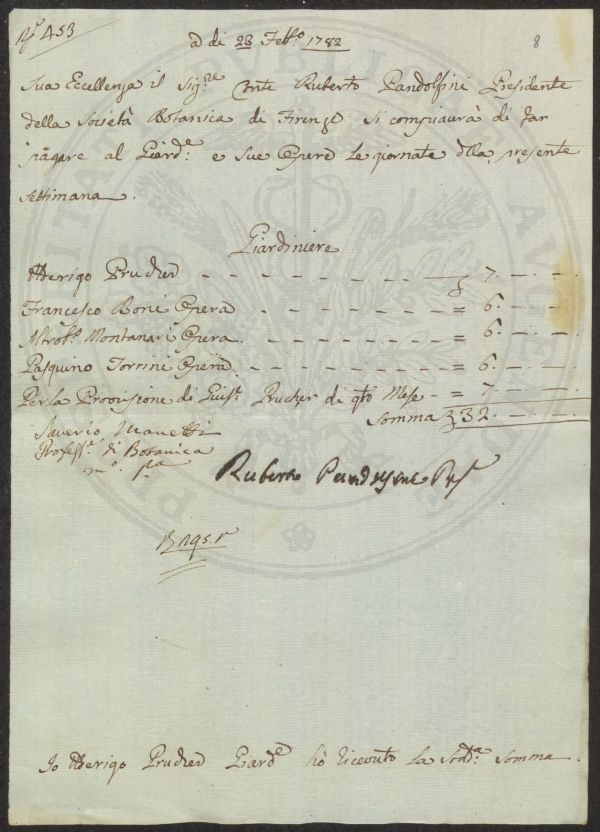 N.° 453
8
a di 23 Febb.° 1782
Sua Eccellenza il Sig.re Conte Ruberto Pandolfini Presidente
della Società Botanica di Firenze si compiacerà di far
pagare al Giard.e e sue Opere le giornate dlla presente
Settimana.
Giardiniere
Prucher — 7. — . —
Francesco Boni Opera = 6. — . —
Montanari Opera = 6. — . —
Pasquino Torrini Opera = 6. — . —
Per la Provvisione di Luis.° Prucher di qto Mese = 7. — . —
Somma 32. — . —
Saverio Manetti
Profess.e di Botanica
m.° p.a
Ruberto Pandolfini
Io Prucher Giard.e hò ricevuto la Sodd.a Somma.
PUBLICAE